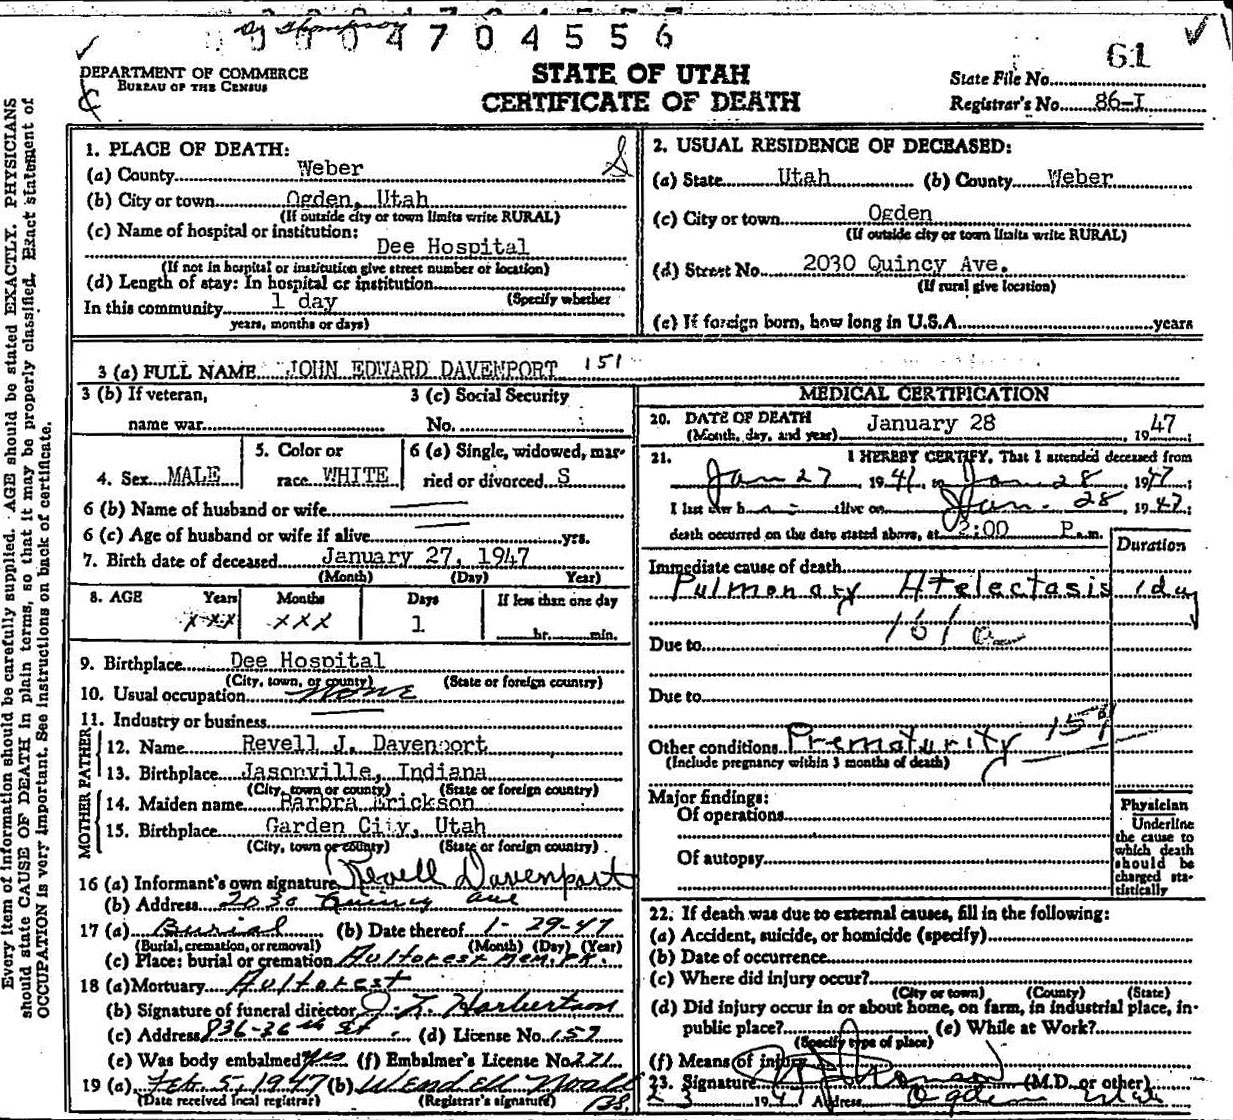 4 7 0 4 5 5 6
DEPARTMENT OF COMMERCE
BUREAU OF THE CENSUS
STATE OF UTAH
CERTIFICATE OF DEATH
61
State File No.
Registrar's No. 86-I
Every item of information should be carefully supplied. AGE should be stated EXACTLY. PHYSICIANS
should state CAUSE OF DEATH in plain terms, so that it may be properly classified. Exact statement of
OCCUPATION is very important. See instructions on back of certificate.
1. PLACE OF DEATH:
(a) County Weber
(b) City or town Ogden, Utah
(If outside city or town limits write RURAL)
(c) Name of hospital or institution:
Dee Hospital
(If not in hospital or institution give street number or location)
(d) Length of stay: In hospital or institution
(Specify whether
In this community 1 day
years, months or days)
2. USUAL RESIDENCE OF DECEASED:
(a) State Utah (b) County Weber
(c) City or town Ogden
(If outside city or town limits write RURAL)
(d) Street No. 2030 Quincy Ave.
(If rural give location)
(e) If foreign born, how long in U.S.A. years
3 (a) FULL NAME JOHN EDWARD DAVENPORT 151
3 (b) If veteran,
name war
3 (c) Social Security
No.
4. Sex MALE
5. Color or
race WHITE
6 (a) Single, widowed, mar-
ried or divorced S
6 (b) Name of husband or wife
6 (c) Age of husband or wife if alive yrs.
7. Birth date of deceased January 27, 1947
(Month) (Day) Year)
8. AGE Years Months Days If less than one day
xxx xxx 1 hr. min.
9. Birthplace Dee Hospital
(City, town, or county) (State or foreign country)
10. Usual occupation None
11. Industry or business
FATHER
12. Name Revell J. Davenport
13. Birthplace Jasonville, Indiana
(City, town or county) (State or foreign country)
MOTHER
14. Maiden name Barbra Erickson
15. Birthplace Garden City, Utah
(City, town or county) (State or foreign country)
16 (a) Informant's own signature Revell Davenport
(b) Address 2030 Quincy ave
17 (a) Burial (b) Date thereof 1-29-47
(Burial, cremation, or removal) (Month) (Day) (Year)
(c) Place: burial or cremation Aultorest Mem. Pk.
18 (a) Mortuary Aultorest
(b) Signature of funeral director Harbertson
(c) Address 836-26th St. (d) License No. 157
(e) Was body embalmed yes (f) Embalmer's License No. 221
19 (a) Feb. 5, 1947 (b) Wendell Noall
(Date received local registrar) (Registrar's signature)
MEDICAL CERTIFICATION
20. DATE OF DEATH
(Month, day, and year) January 28 , 1947;
21. I HEREBY CERTIFY, That I attended deceased from
Jan 27 1947, to Jan 28, 1947;
I last saw h alive on Jan. 28, 1947;
death occurred on the date stated above, at 2:00 P.m.
Duration
Immediate cause of death
Pulmonary Atelectasis 1 day
161a
Due to
Due to
159
Other conditions Prematurity
(Include pregnancy within 3 months of death)
Major findings:
Of operations
Of autopsy
Physician
Underline
the cause to
which death
should be
charged sta-
tistically
22. If death was due to external causes, fill in the following:
(a) Accident, suicide, or homicide (specify)
(b) Date of occurrence
(c) Where did injury occur?
(City or town) (County) (State)
(d) Did injury occur in or about home, on farm, in industrial place, in
public place? (e) While at Work?
(Specify type of place)
(f) Means of injury
23. Signature (M.D. or other)
2 3 1947 Address Ogden Utah